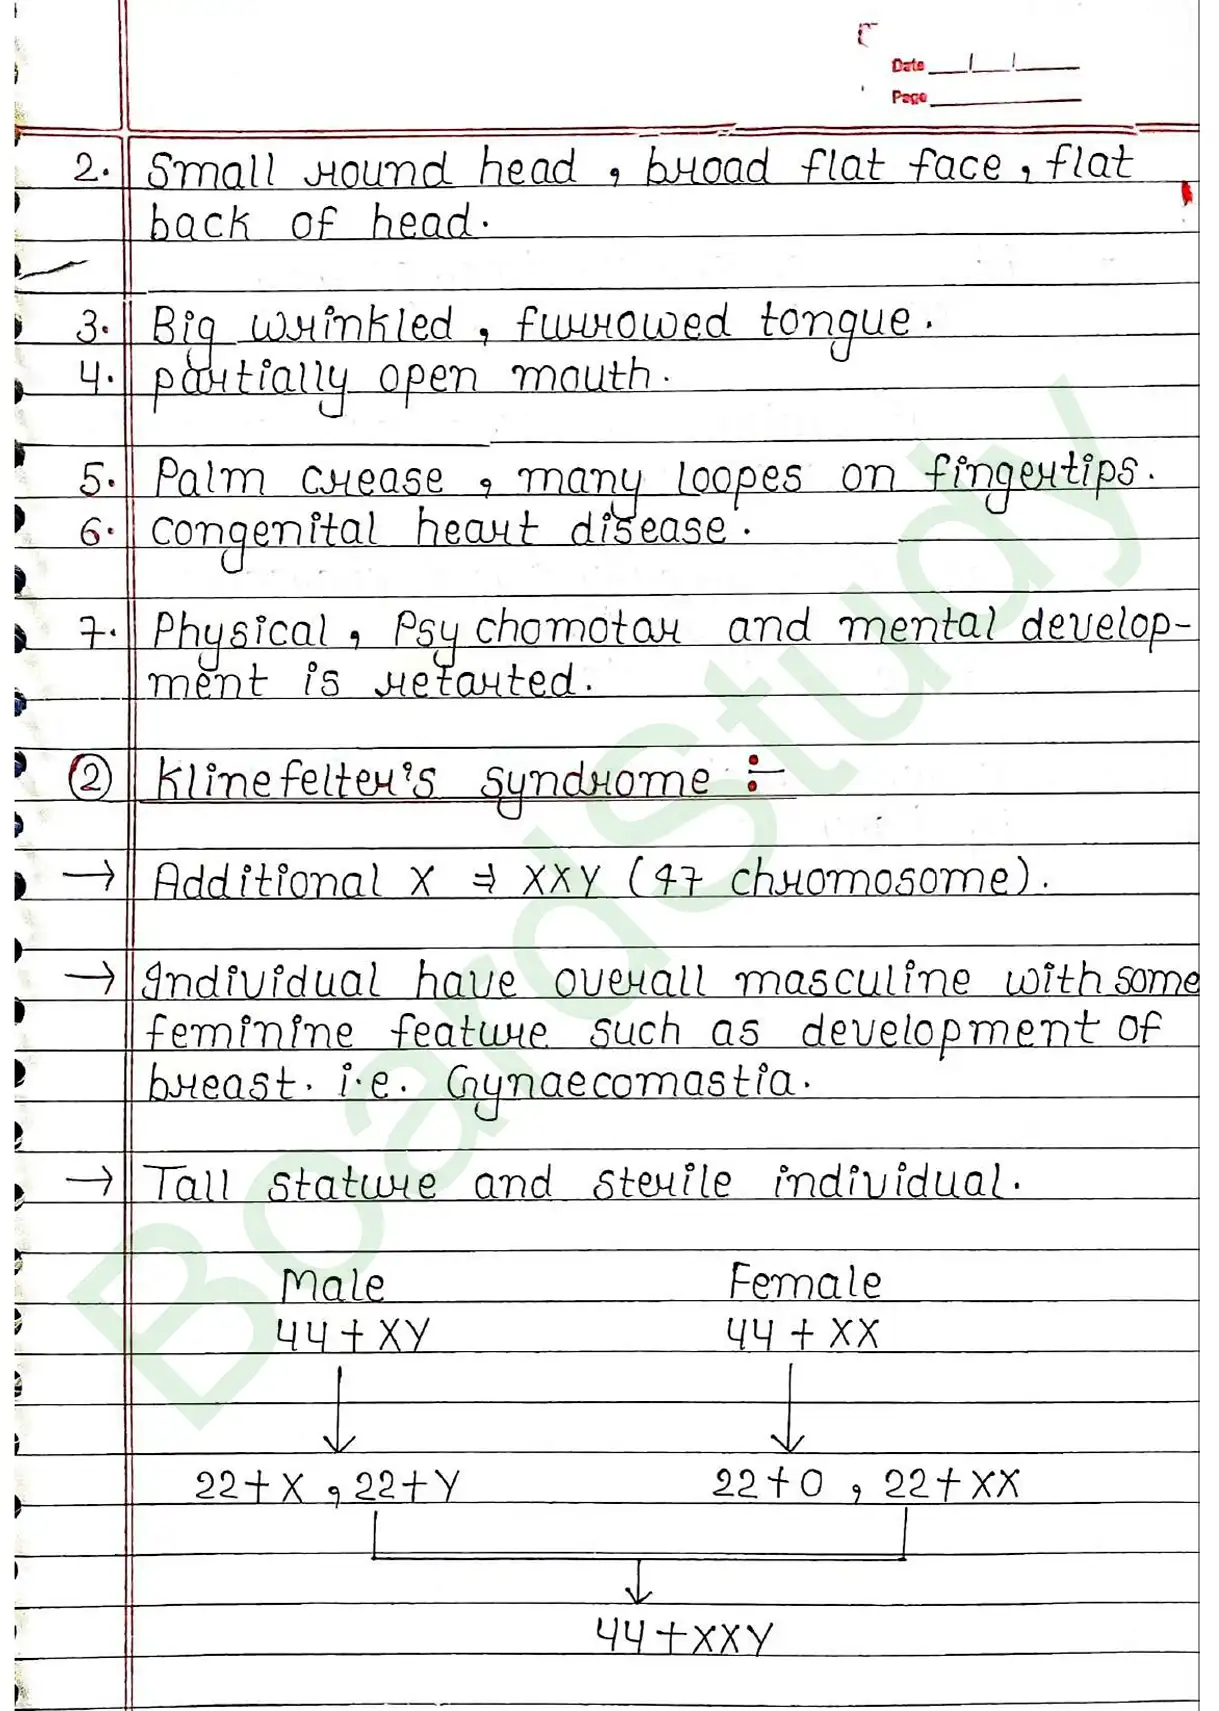 Date
Page
2. Small round head, broad flat face, flat
back of head.
3. Big wrinkled, furrowed tongue.
4. partially open mouth.
5. Palm crease, many loopes on fingertips.
6. congenital heart disease.
7. Physical, Psychomotar and mental develop-
ment is retarted.
② Klinefelter's syndrome :-
→ Additional X ⇒ XXY (47 chromosome).
→ Individual have overall masculine with some
feminine feature such as development of
breast. i.e. Gynaecomastia.
→ Tall stature and sterile individual.
Male Female
44+XY 44+XX
22+X, 22+Y 22+0, 22+XX
44+XXY
BoardStudy